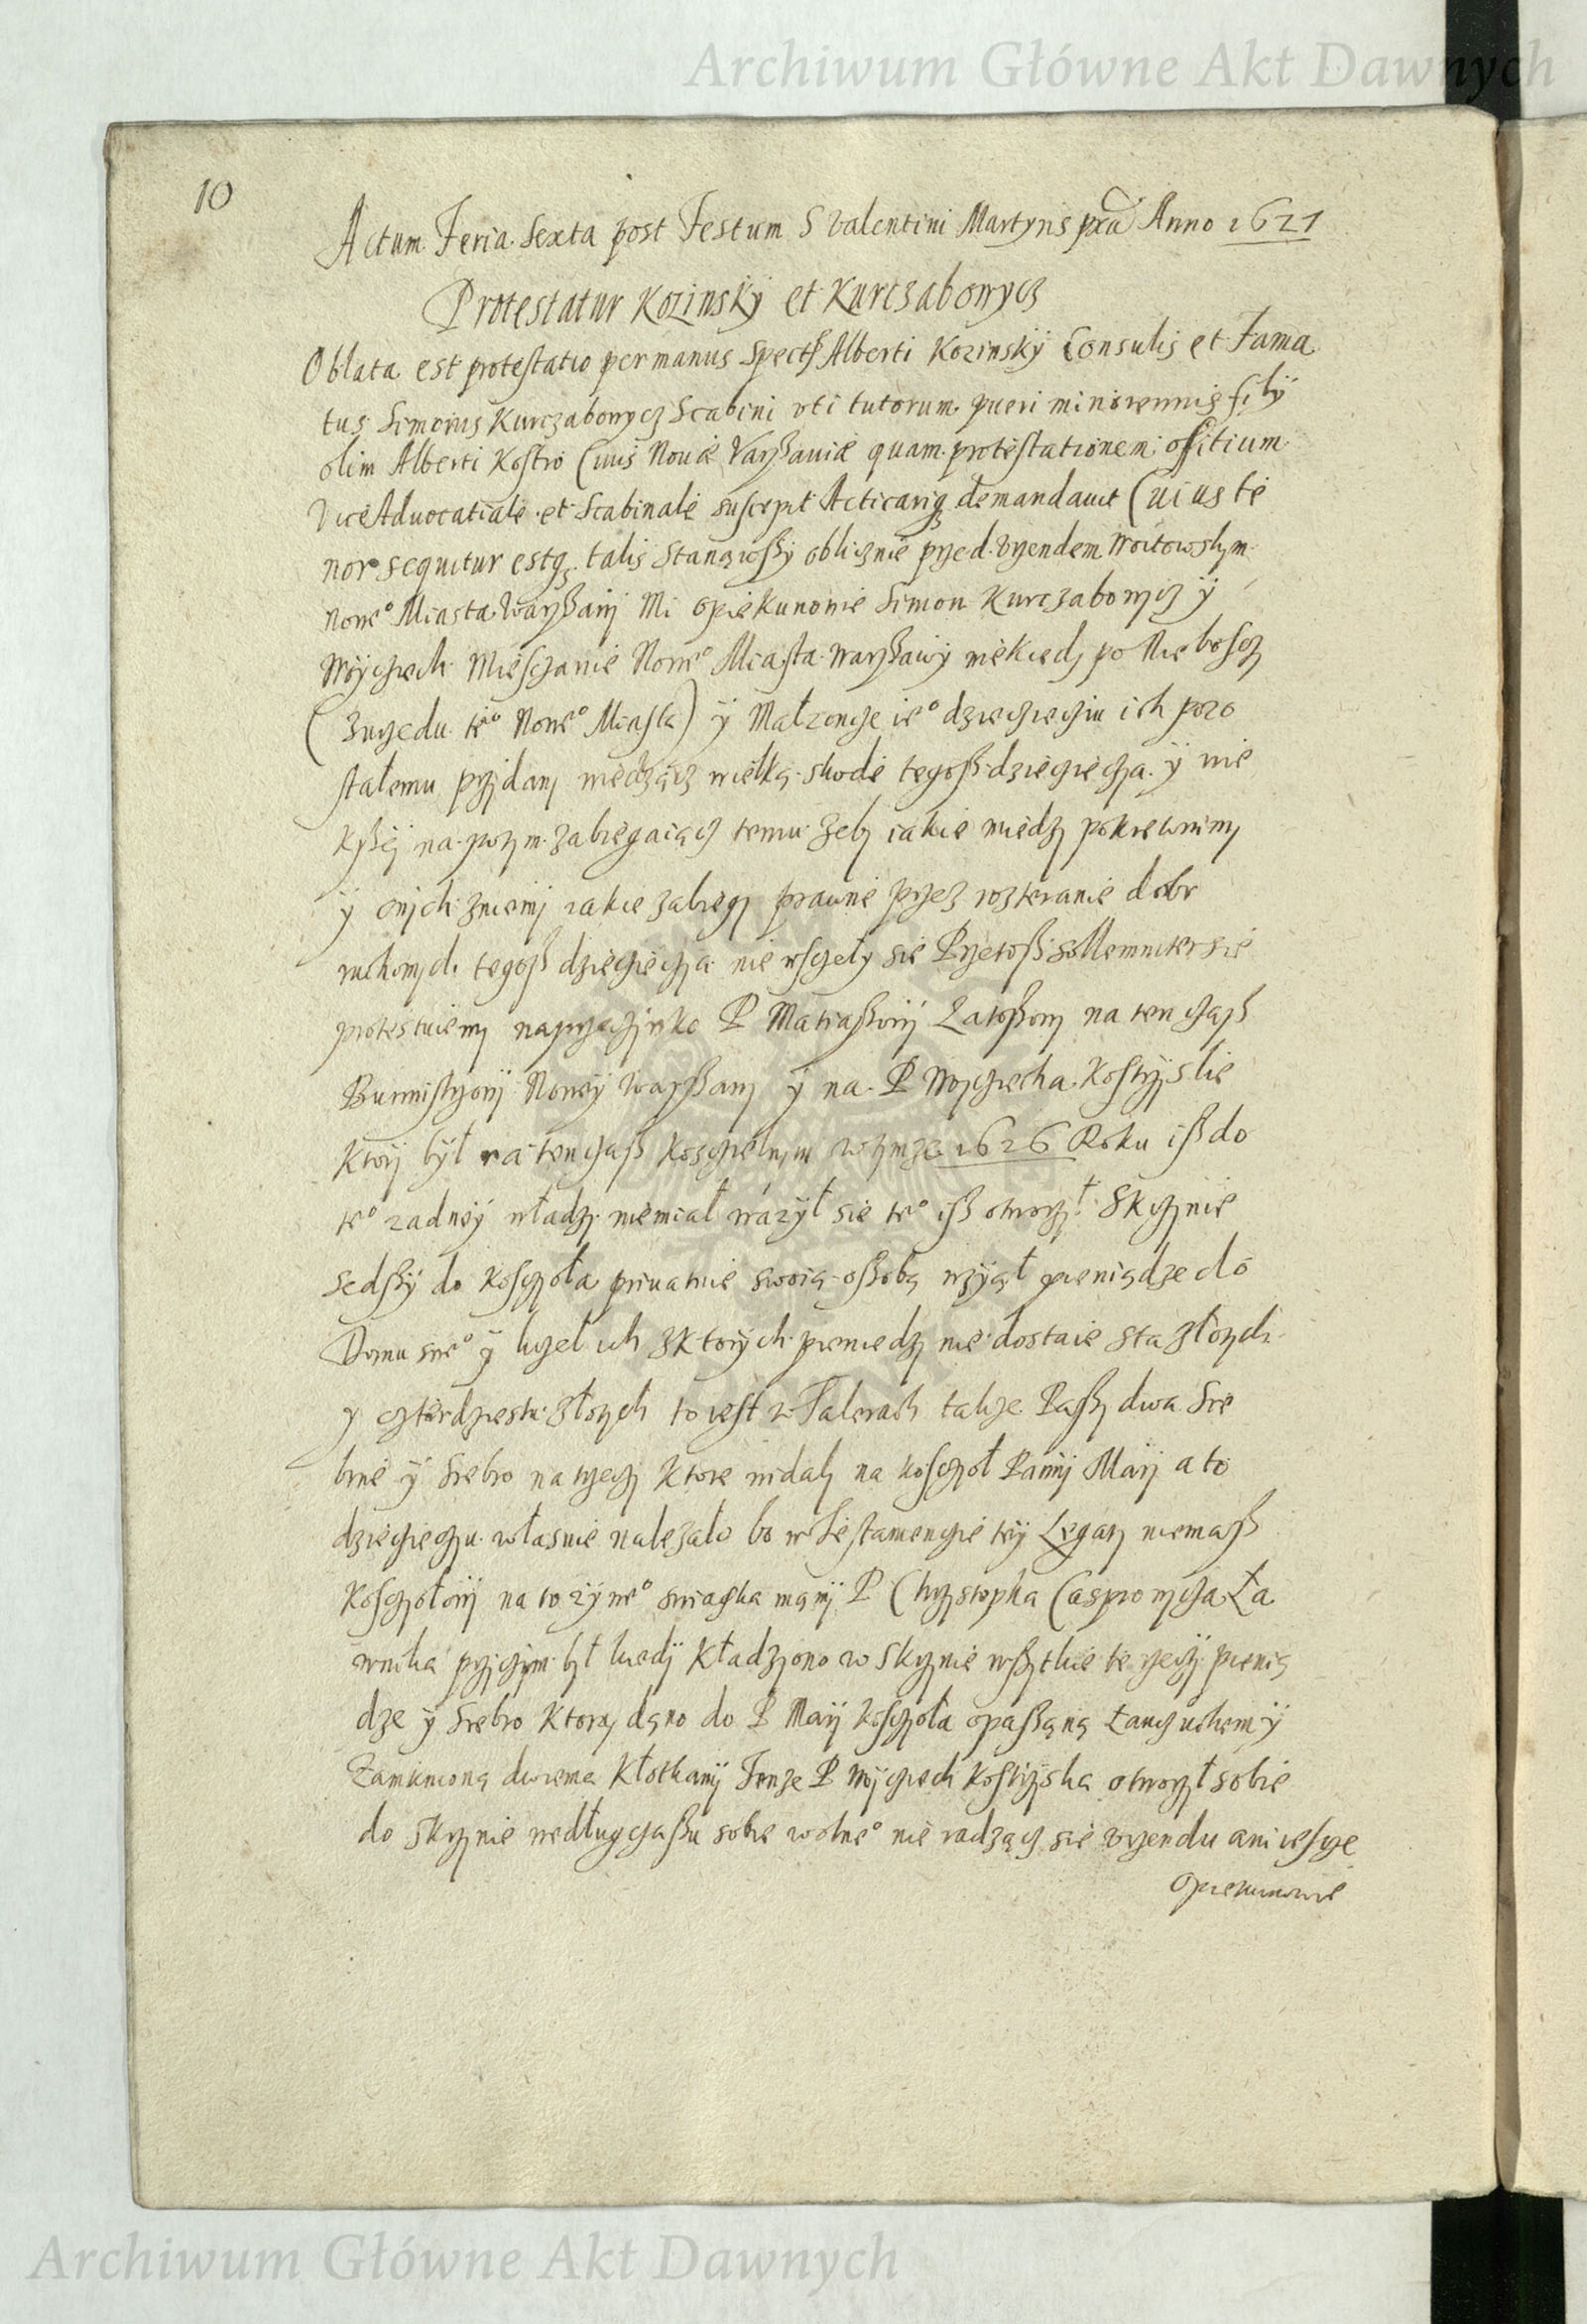 Archiwum Główne Akt Dawnych
10
Actum Feria Sexta post Festum S Valentini Martyris Anno 1621
Protestatur Kozinsky et Kurczabowycz
Oblata est protestatio per manus Spect Alberti Kozinsky Consulis et Fama
tus Simonis Kurczabowycz Scabini uti tutorum pueri minorennis filÿ
olim Alberti Kostro Civis Novæ Varßaviæ quam protestationem offitium
ViceAdvocatiale et Scabinale suscepit Acticariq demandavit Cuius te
nor sequitur estq talis Stanąwßy oblicznie przed Urzendem Woitowskym
Nowe° Miasta Warßawÿ Mi opiekunowie Simon Kurczabowycz ÿ
Woÿciech Miesczanie Nowe° Miasta Warßawÿ niekiedy po Niebosczy
(Zurzedu te° Nowe° Miasta) ÿ Małzonce ie° dziecieciu ich pozo
stałemu przydany wiedząć wielką skode tegoß dziecięcza ÿ nie
na zabiegaiącz temu zeby iakie miedzy pokrewnimy
y onych iakie zabiegy prawne przez rozteranie dobr
ruchomych tegoß dziecięcza nie wsczęły sie Przetoß sollemniter sie
protestuiemy naprzeciwko P Matiaßowÿ Latoßowy na ten czaß
Burmistrzowÿ Nowey Warßawy ÿ na P Woyciecha
Ktory był na ten czaß Kosczielnym 1626 Roku iß do
te° zadneÿ władzy niemiał wázył sie te° iß otworzył Skrzynie
sedßy do Kosczoła privatnie swoią oßobą wzyął pieniądze do
Domu swe° ÿ liczeł ich zktorych pieniedzy nie dostaie sta złotych
y czterdziestu złotych to iest w Talerach takze Paßy dwa Sre
brne ÿ Srebro na rzeczy ktore widaly na kosczoł Panny Mary a to
dziecieczu własnie nalezało bo w Testamencie teÿ Legaty niemaß
Kosczołowÿ na to zywe° swiatka mamÿ P Chrzystopha Casprowycza Ła
wnika przyczym był kiedÿ kładziono w Skrzynie wßytkie te rzeczÿ pienią
dze ÿ Srebro Ktorą dąno do P Mary Kosczoła opaßaną Łanczuchem ÿ
Zamknioną dwiema Kłotkamÿ Tenze P Woÿciech otworzył sobie
do Skrzynie według czaßu sobie wolne° nie radząć sie Urzendu ani iescze
opiekunowie
Archiwum Główne Akt Dawnych